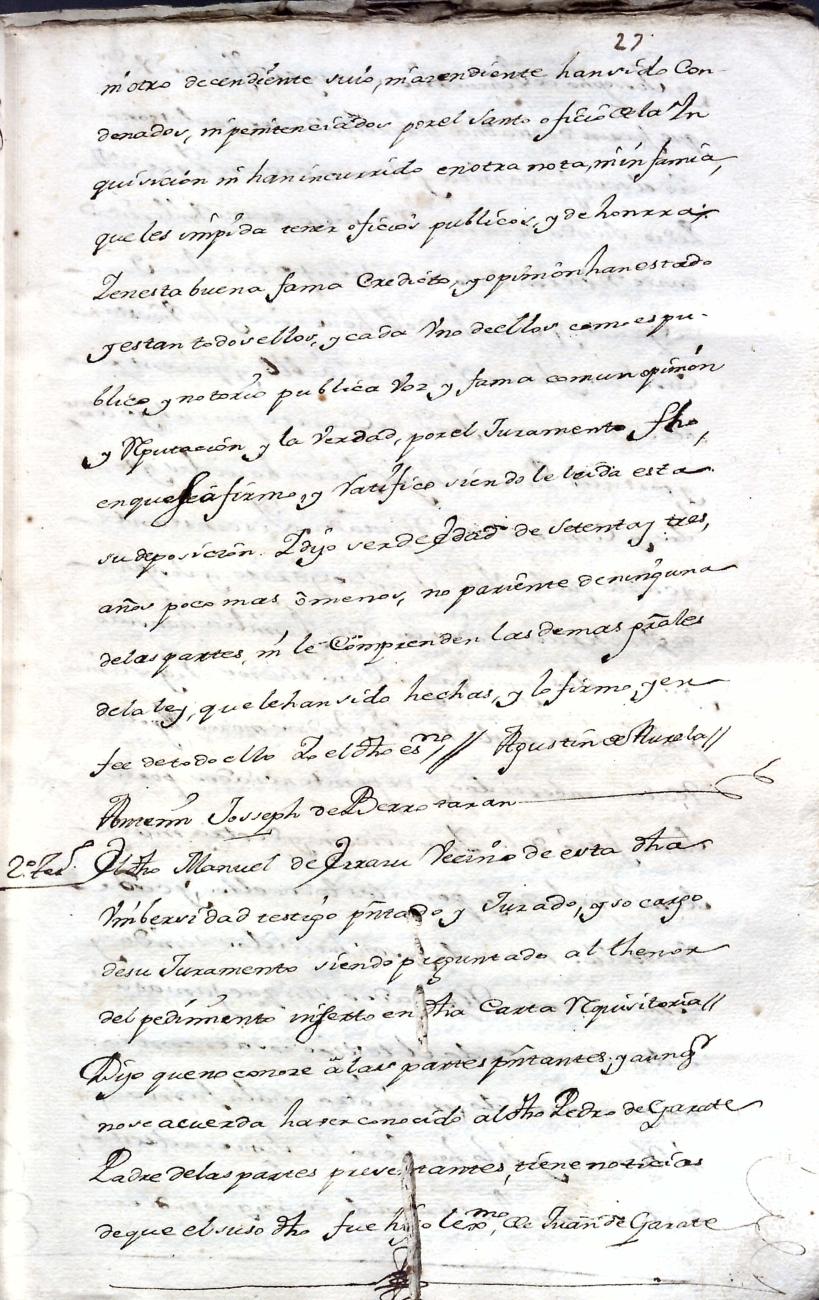 27
ni otro decendiente suio, ni acendiente han sido Con-
denados, ni penitenciados por el santo oficio de la In
quisicion ni han incurrido en otra nota, ni infamia,
que les impida tener oficios publicos, y de honrra;
Y en esta buena fama Credicto, y opinion han estado
y estan todos ellos, y cada Vno de ellos como es pu-
blico y notorio publica Voz y fama comun opinion
y Reputacion y la Verdad, por el Juramento fho,
en que se afirmo, y Ratifico siendole leida esta
su deposicion. Y dijo ser de Edad de Setenta y tres,
años poco mas ô menos, no pariente de ninguna
de las partes, ni le Comprenden las demas grâles
de la ley, que le han sido hechas, y lo firmo, y en
fee de todo ello Yo el dho esno // Agustin de
Antemi Josseph de Berrotaran
2º. Tesº. El dho Manuel de Yrraru Vecino de esta dha
Vnibersidad testigo pntado y Jurado, y so cargo
de su Juramento siendo preguntado al thenor
del pedimiento inserto en dha Carta Requisitoria //
Dijo que no conoze â las partes pntantes, y aunq
no se acuerda haver conocido al dho Pedro de Garate
Padre de las partes presentantes, tiene noticias
de que el suso dho fue hijo lexmo, de Juan de Garate